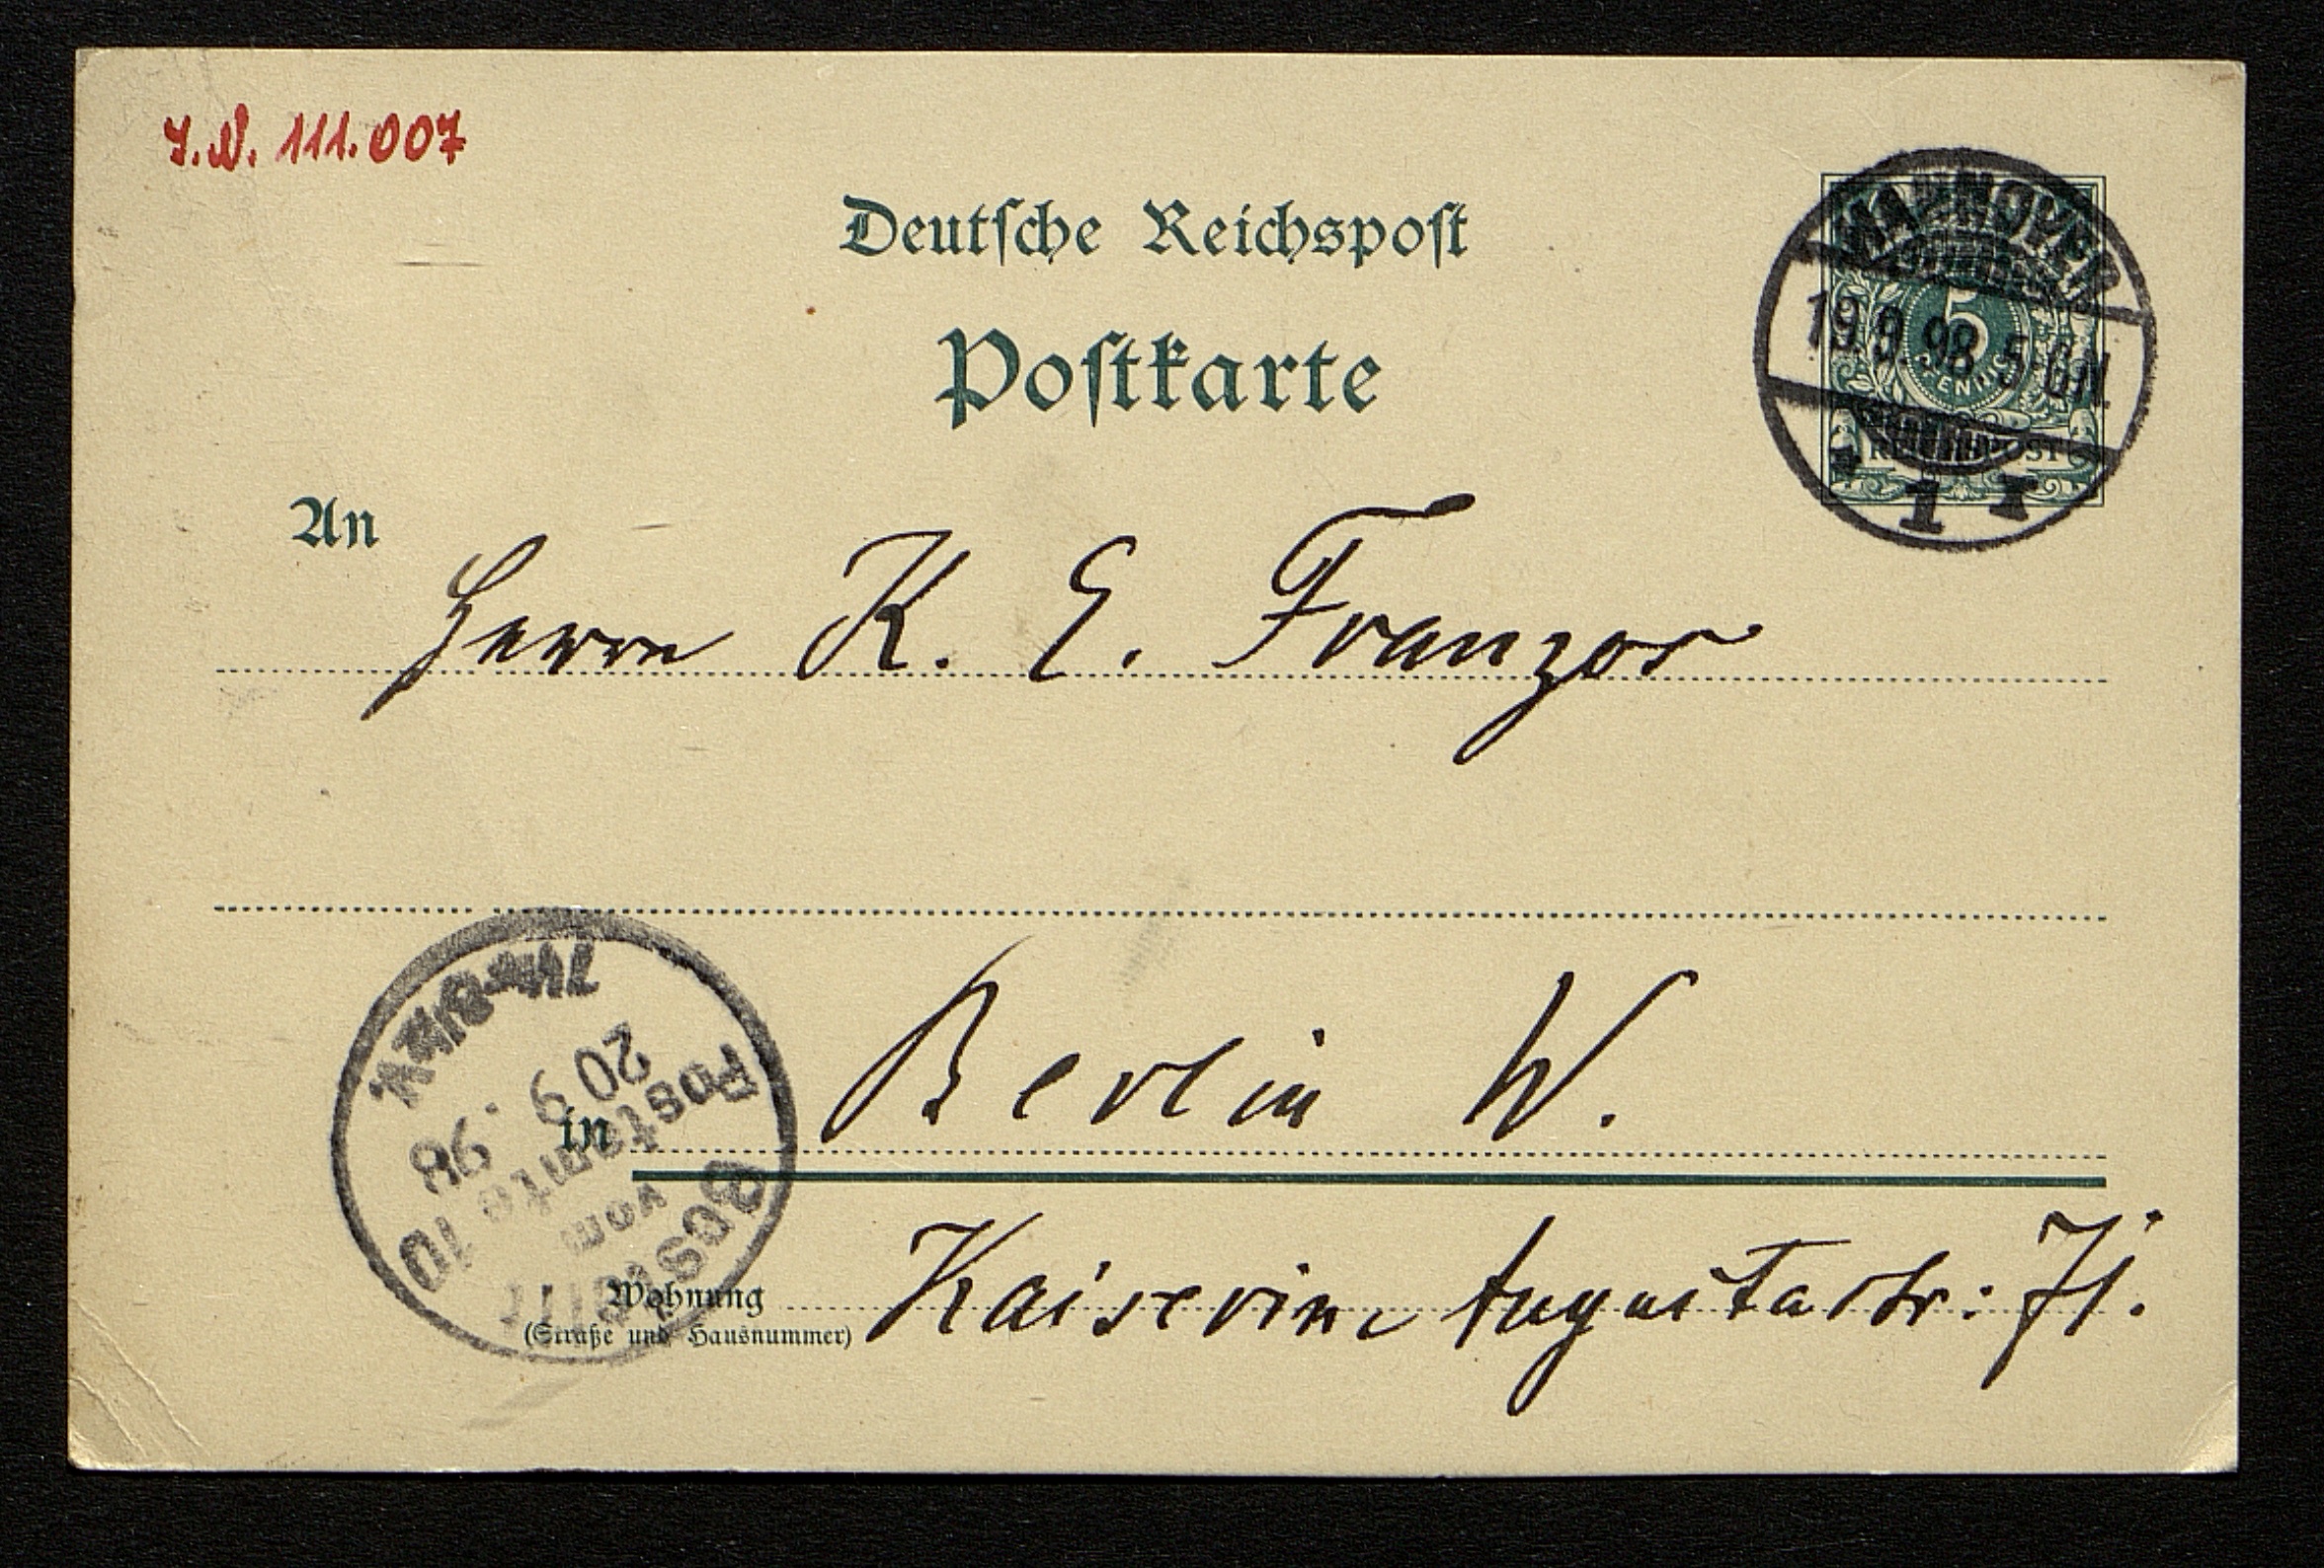 J.N. 111.007
Deutsche Reichspost
Postkarte
HANNOVER
19.9.98. 5-6N.
1 r
5
PFENNIG
REICHSPOST
An
Herrn K. E. Franzos
in Berlin W.
Wohnung Kaiserin Augustastr: 71.
(Straße und Hausnummer)
Bestellt
vom
Postamte 10
20 9. 98
7¼-8½V.